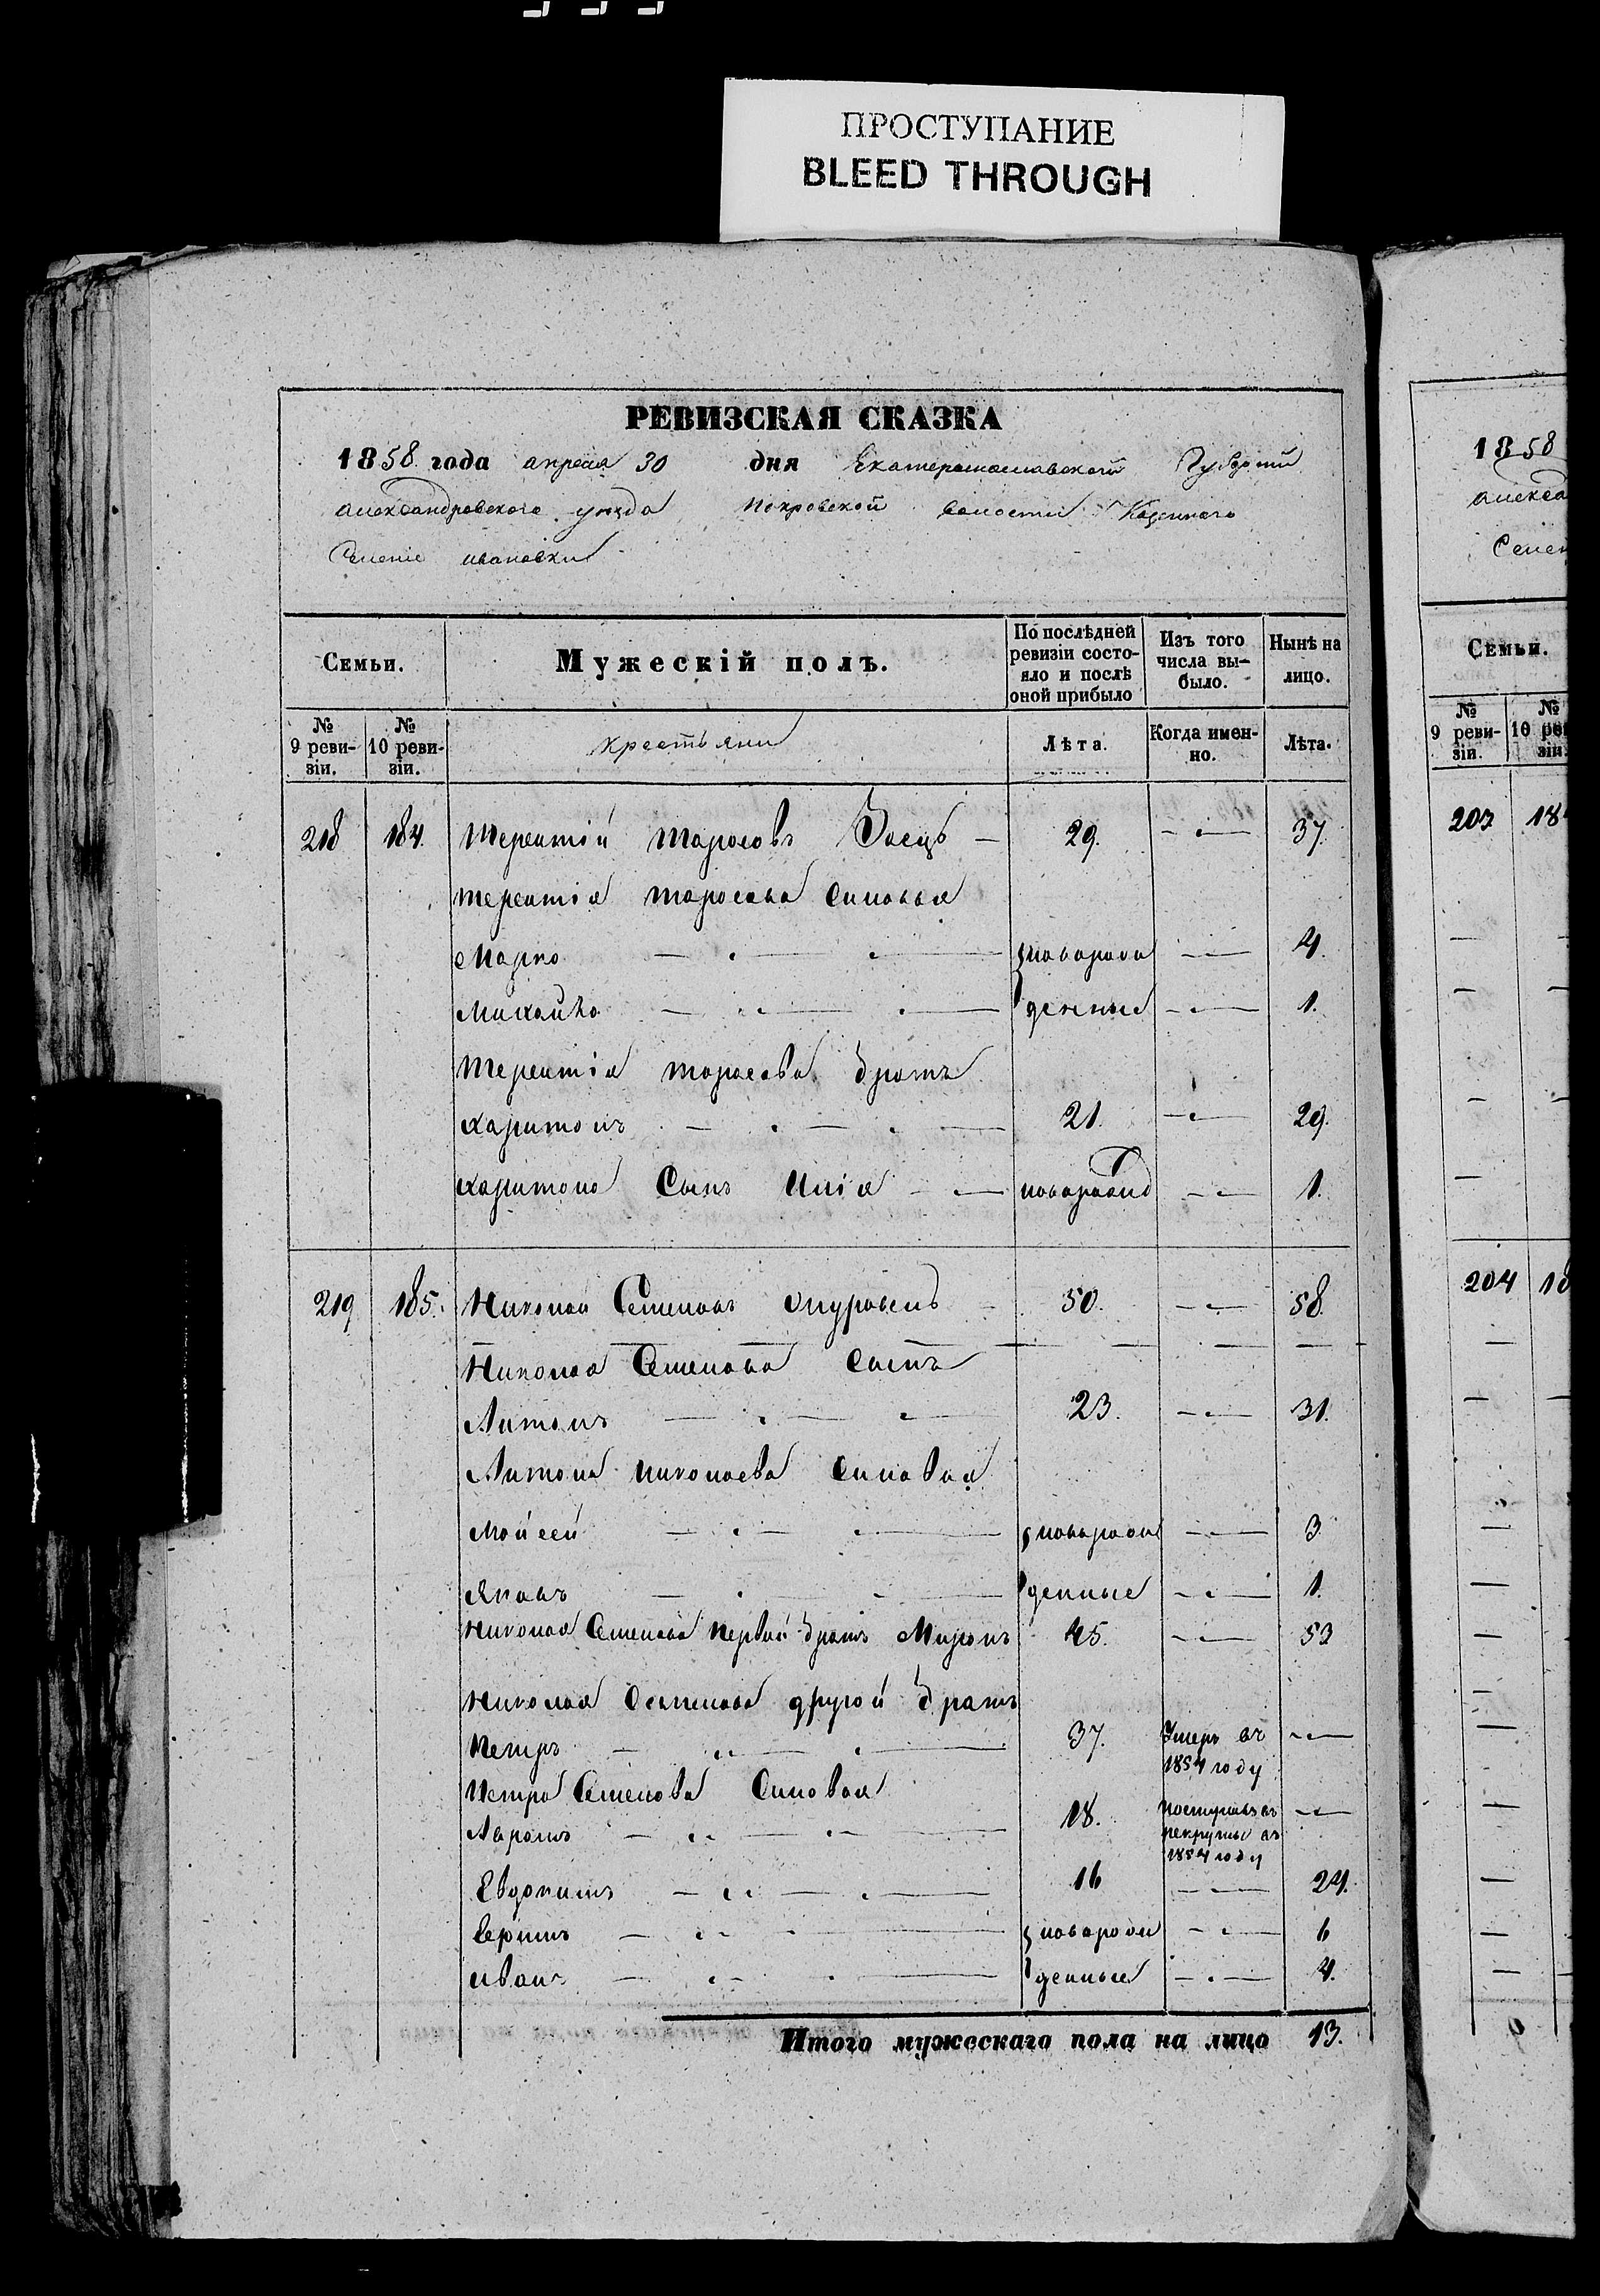 ПРОСТУПАНИЕ
BLEED THROUGH
РЕВИЗСКАЯ СКАЗКА
1858 года апреля 30 дня Екатеринославской Губернии
александровского уезда покровской волости Казенного
Селение ивановки
Семьи.
Мужескій полъ.
По послѣдней ревизіи состояло и послѣ оной прибыло
Изъ того числа выбыло.
Нынѣ на лицо.
№ 9 ревизіи.
№ 10 ревизіи.
крестьяни
Лѣта.
Когда именно.
Лѣта.
218 184. Терентій Тарасовъ Заецъ — 29. 37.
терентія тарасова синовья
Марко новорож 4.
Михайло денные 1.
Терентія тарасова братъ
харитонъ 21. 29.
харитона Сынъ Илія новорожд 1.
219 185. Николай Семеновъ 50. 58.
Николая Семенова сынъ
Антонъ 23. 31.
Антона николаева синовья
Мойсей новорож 3
Яковъ денные 1.
Николая Семенова первый братъ Миронъ 45. 53
Николая Семенова другой братъ
Петръ 37. Умеръ въ 1854 году
Петра Семенова Синовья
18. поступилъ въ рекруты въ 1854 году
Евдокимъ 16 24.
новорож 6
иванъ денные 4.
Итого мужескаго пола на лицо 13.
1858
алекса
Селен
Семьи.
№ 9 ревизіи.
№ 10 реви зіи.
203 18
204 18